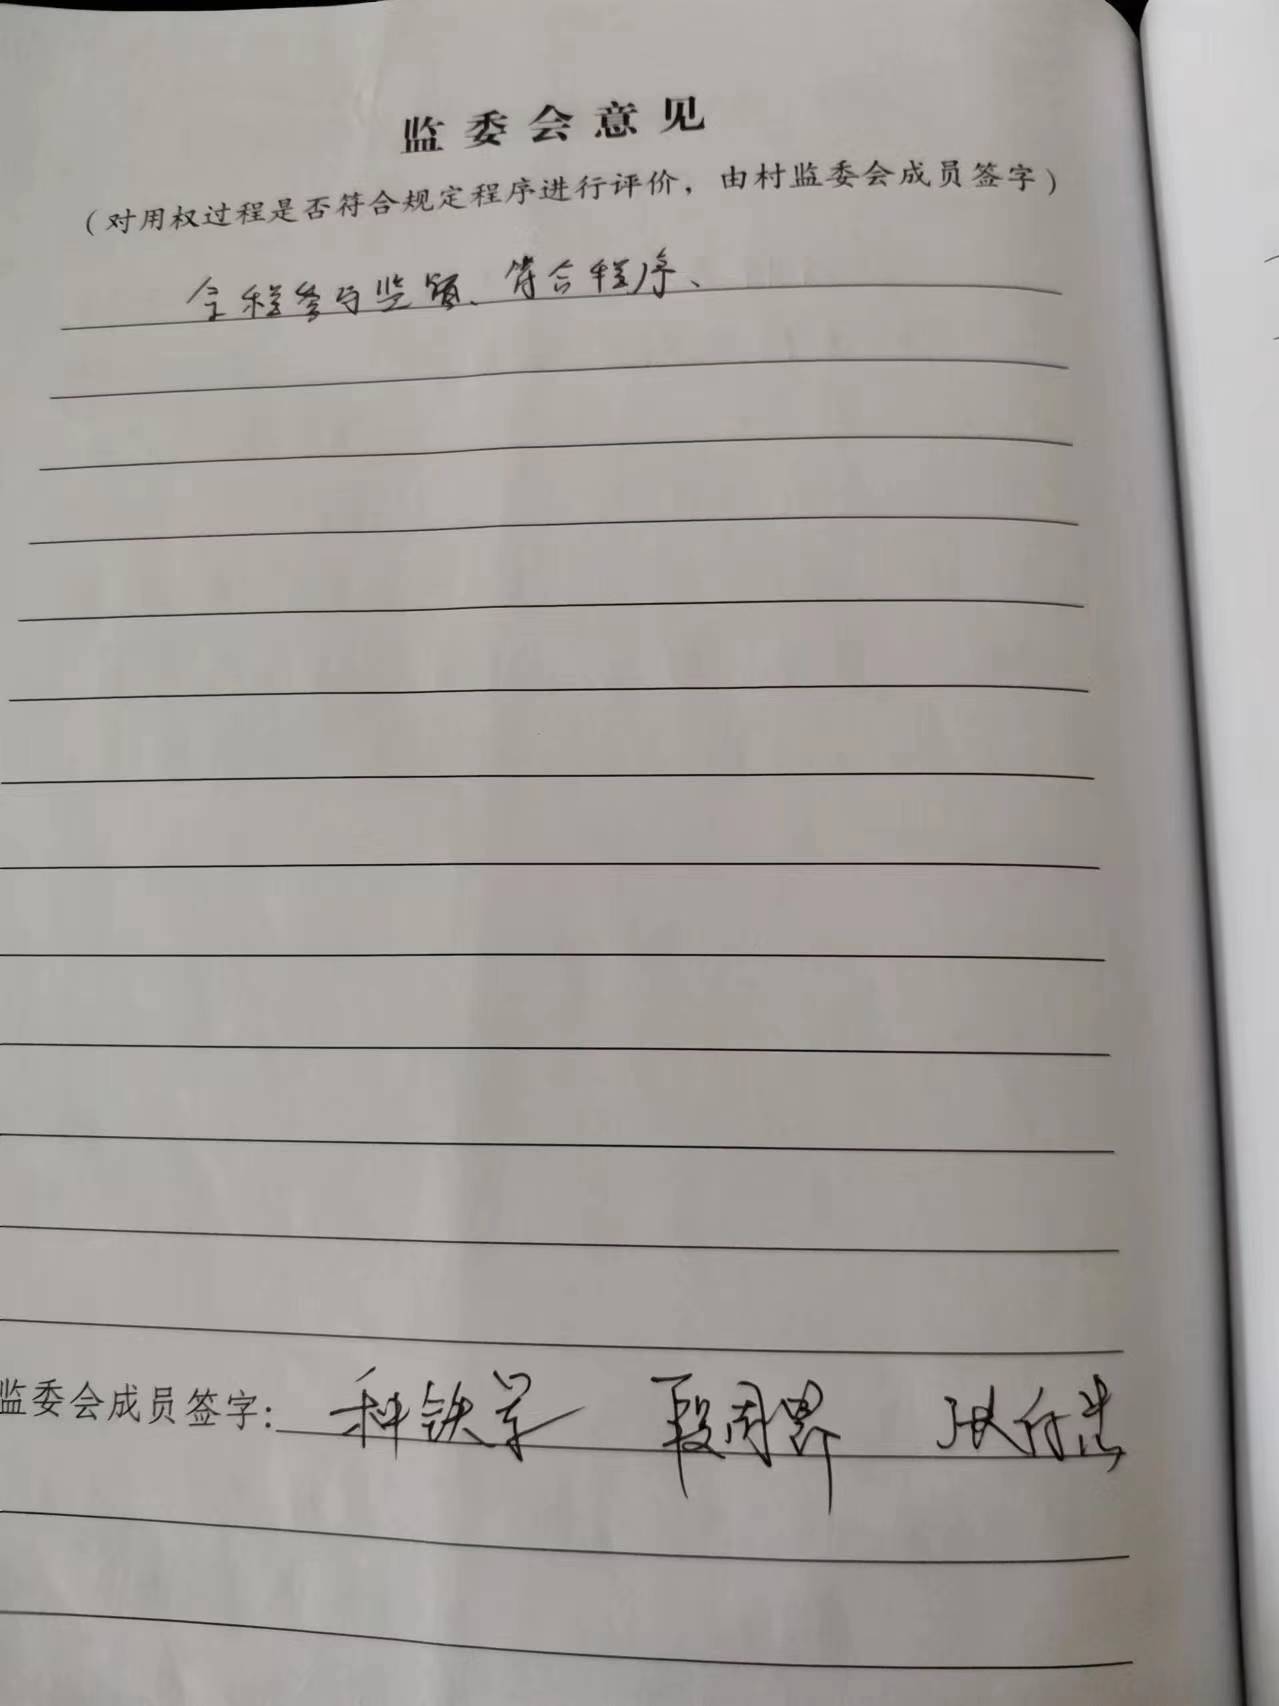 监委会意见
（对用权过程是否符合规定程序进行评价，由村监委会成员签字）
全程参与监督、符合程序、
监委会成员签字：